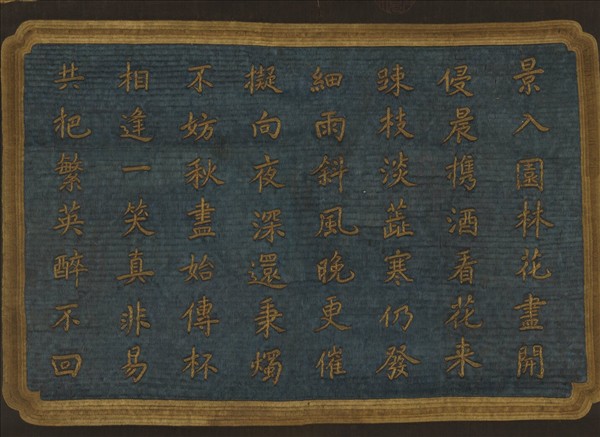 景入園林花盡開
侵晨携酒看花来
踈枝淡蕋寒仍發
細雨斜風晚更催
擬向夜深還秉燭
不妨秋盡始傳杯
相逢一笑真非易
共把繁英醉不回